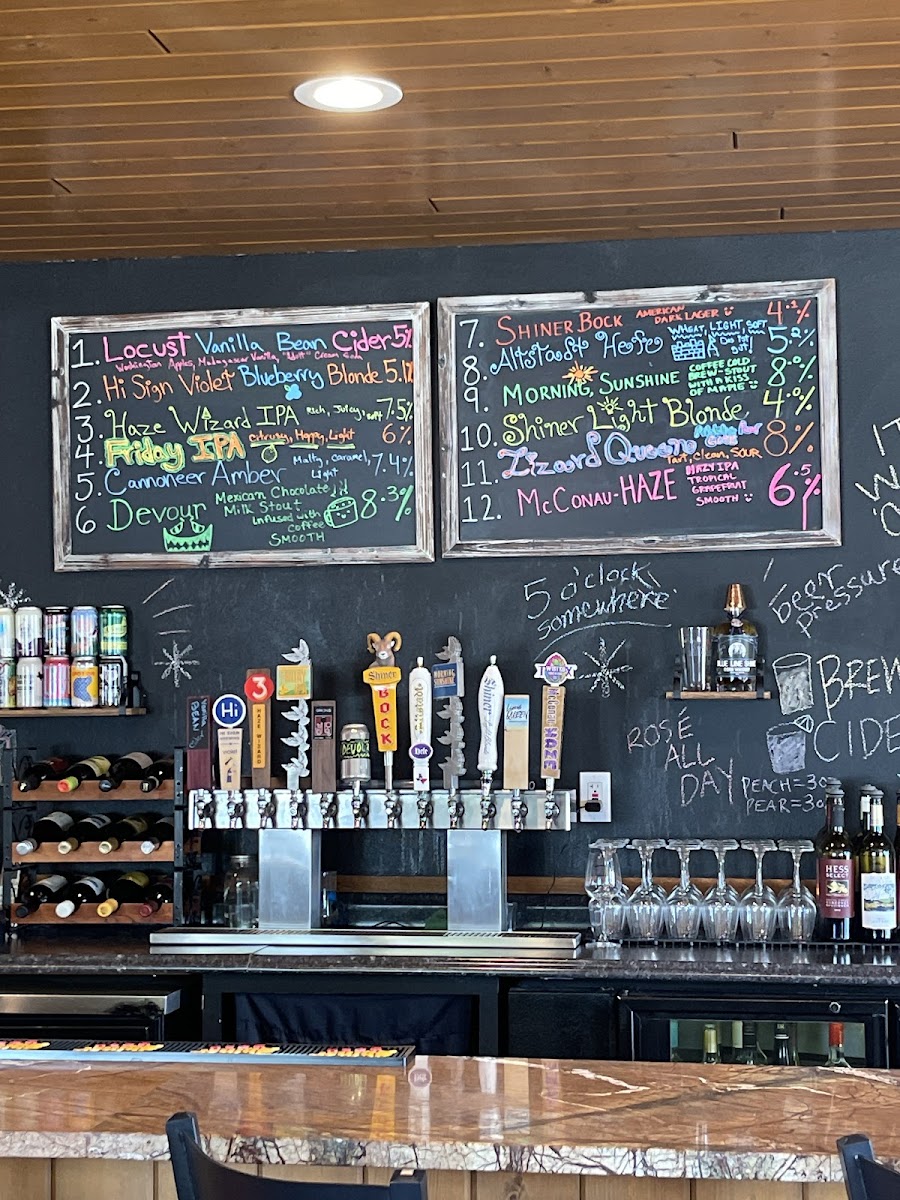 1. Locust Vanilla Bean Cider 5%
Washington Apples, Madagascar Vanilla, "Adult" Cream Soda
2 Hi Sign Violet Blueberry Blonde 5.1%
3. Haze Wizard IPA Rich, Juicy, soft 7.5%
4. Friday IPA citrusy, Hoppy, Light 6%
5. Cannoneer Amber Malty, caramel, Light 7.4%
6 Devour Mexican Chocolate
Milk Stout
Infused with
Coffee
SMOOTH
8.3%
7. SHINER BOCK AMERICAN
DARK LAGER 4.1%
8. Altstadt Hefe WHEAT, LIGHT, SOFT 5.2%
9. MORNING, SUNSHINE COFFEE COLD
BREW STOUT
WITH A KISS
OF MAPLE
8.0%
10. Shiner Light Blonde 4.0%
11. Lizard Queen
Tart, Clean, SOUR
8%
12. McCONAU-HAZE HAZY IPA
TROPICAL
GRAPEFRUIT
SMOOTH
6.5%
5 o'clock
somewhere
beer
pressure
BREW
CIDE
ROSÉ
ALL
DAY
PEACH=
PEAR=
IT
BLUE LINE
VANILLA
BEAN
Hi
3
HAZE WIZARD
DEVOUR
Shiner
BOCK
Altstadt
Hefe
MORNING
SUNSHINE
Shiner
LIZARD
QUEEN
TWISTED X
McCONAU
HAZE
HESS
SELECT